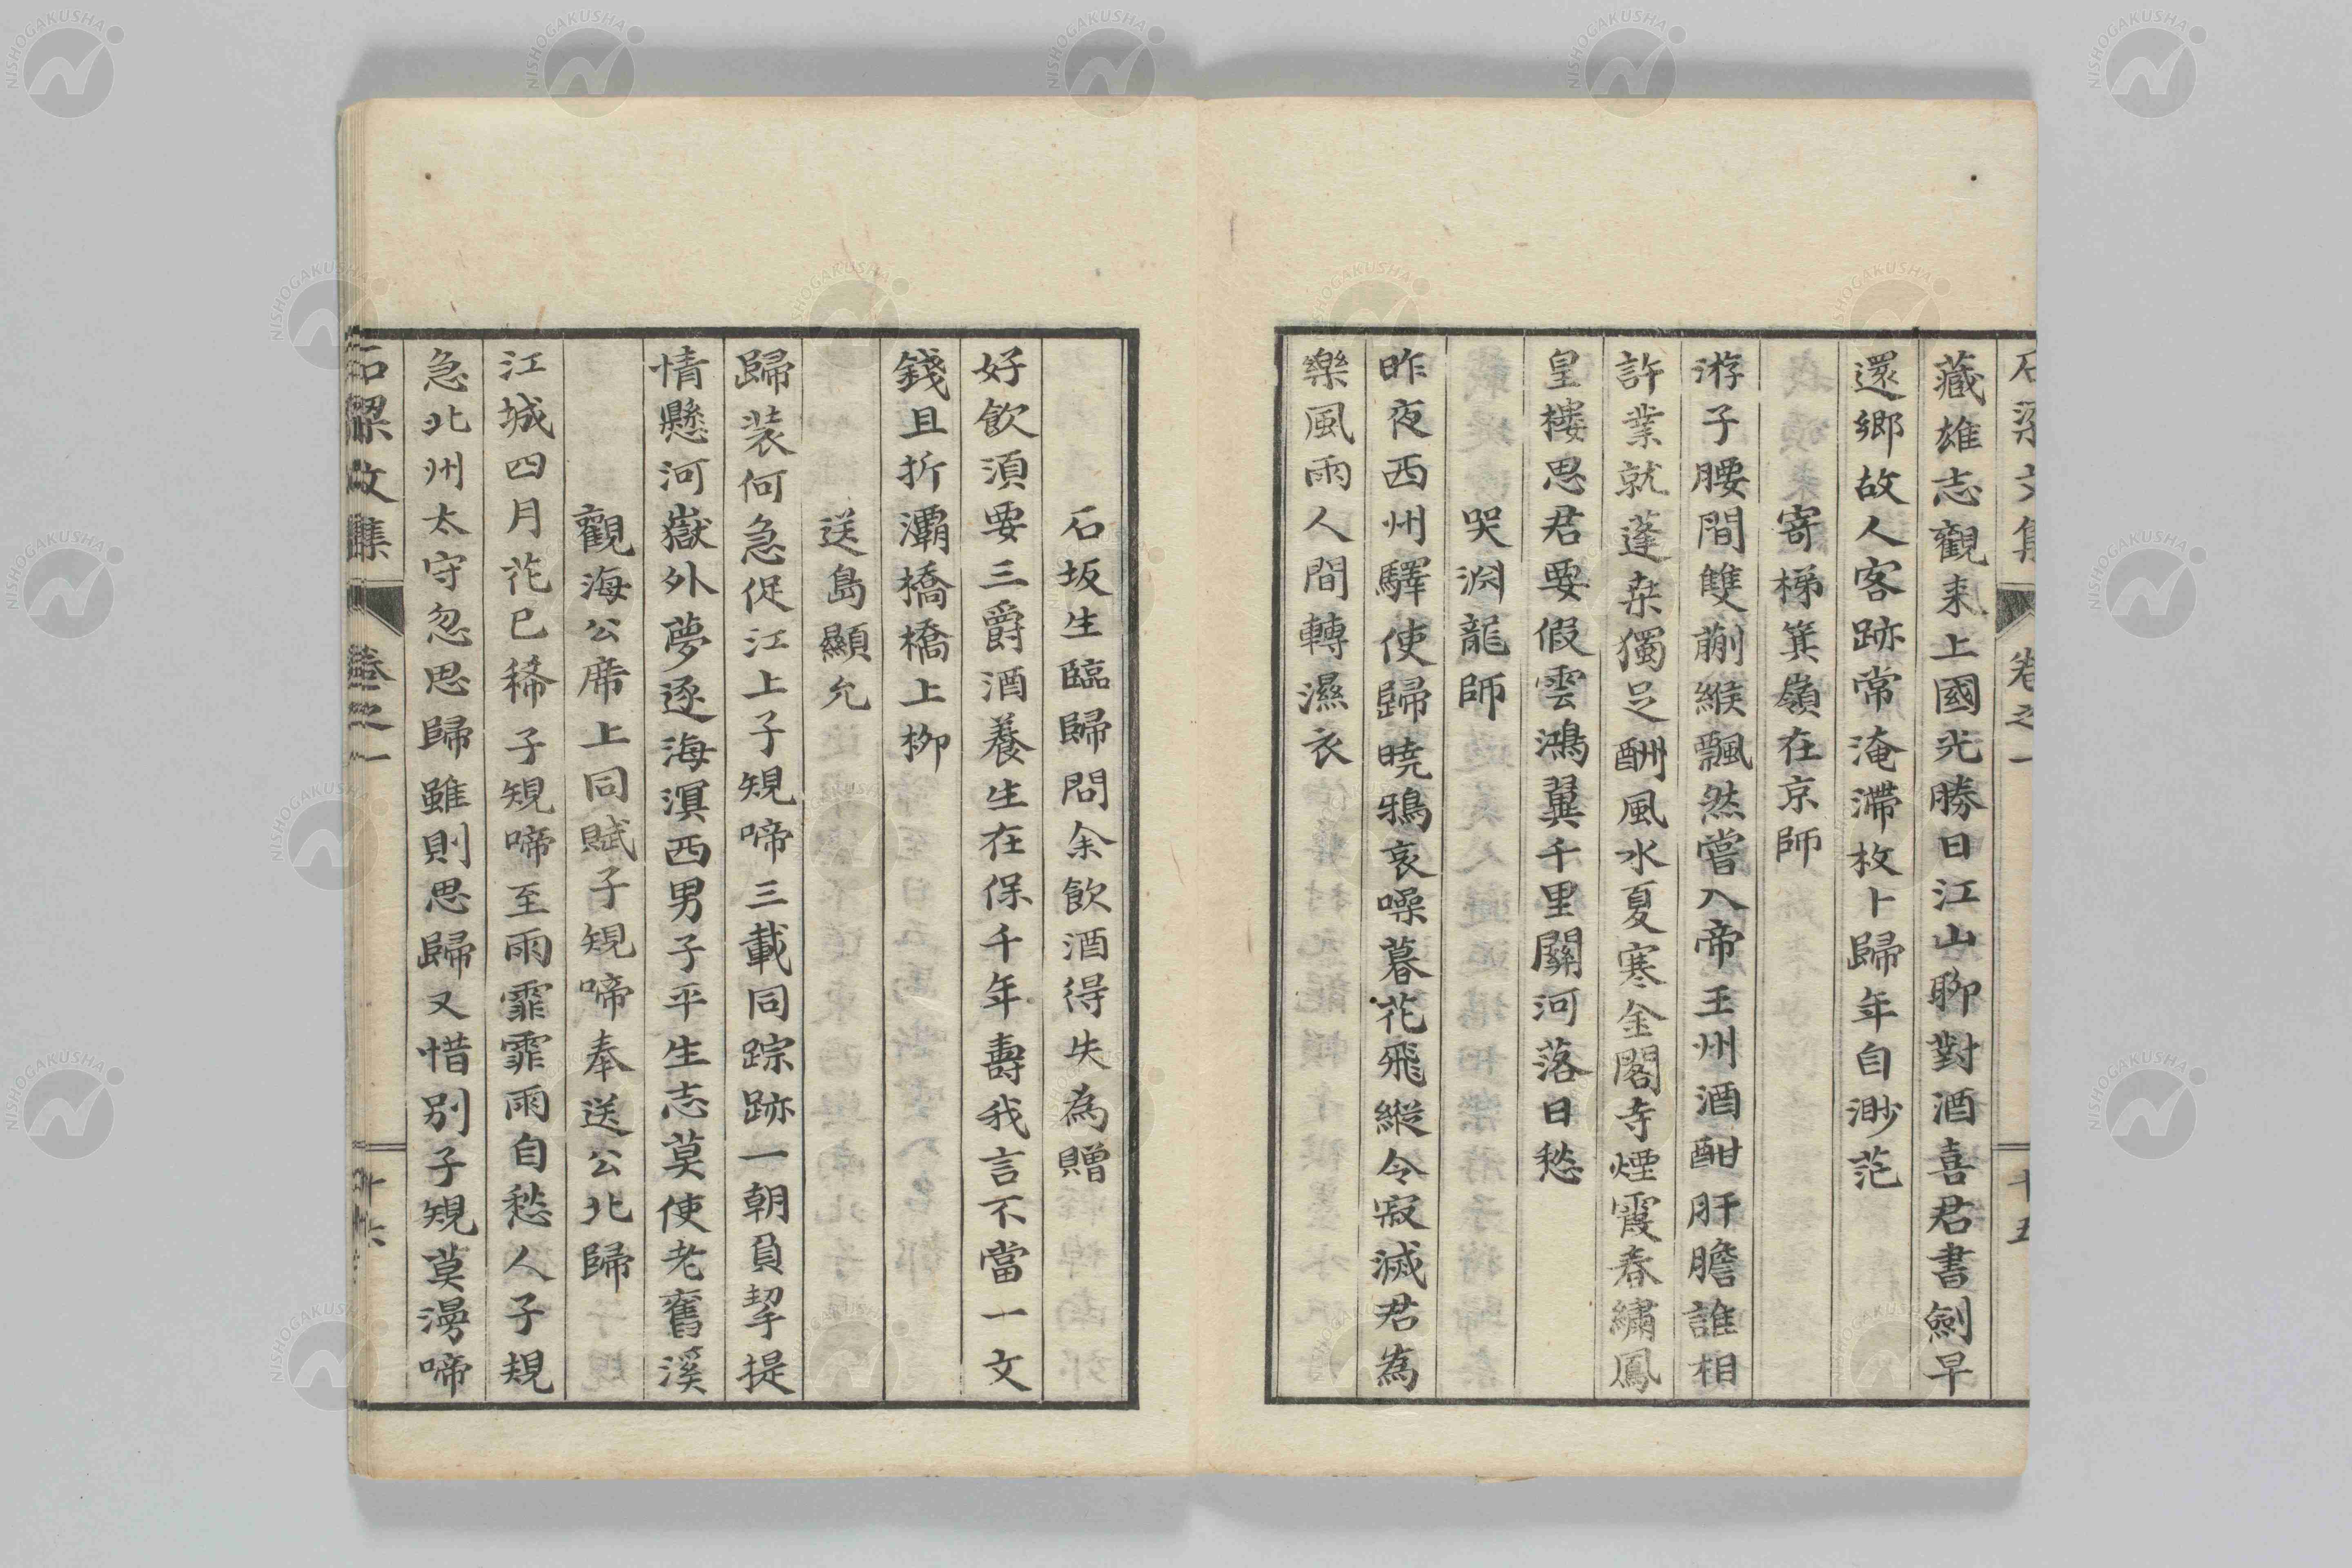 石梁文集 卷之一 十五
藏雄志觀来上國光勝日江山聊對酒喜君書劍早
還鄉故人客跡常淹滯枚卜歸年自渺茫
寄梯箕嶺在京師
游子腰間雙蒯緱飄然嘗入帝王州酒酣肝膽誰相
許業就蓬桒獨足酬風水夏寒金閣寺煙霞春繡鳳
皇樓思君要假雲鴻翼千里關河落日愁
哭渕龍師
昨夜西州驛使歸曉鴉哀噪暮花飛縱令寂滅君為
樂風雨人間轉濕衣
石坂生臨歸問余飲酒得失為贈
好飲須要三爵酒養生在保千年壽我言不當一文
錢且折灞橋橋上柳
送島顯允
歸装何急促江上子規啼三載同踪跡一朝負挈提
情懸河嶽外夢逐海溟西男子平生志莫使老舊溪
觀海公席上同賦子規啼奉送公北歸
江城四月花已稀子規啼至雨霏霏雨自愁人子規
急北州太守忽思歸雖則思歸又惜別子規莫漫啼
石梁文集 卷之一 十六
NISHOGAKUSHA